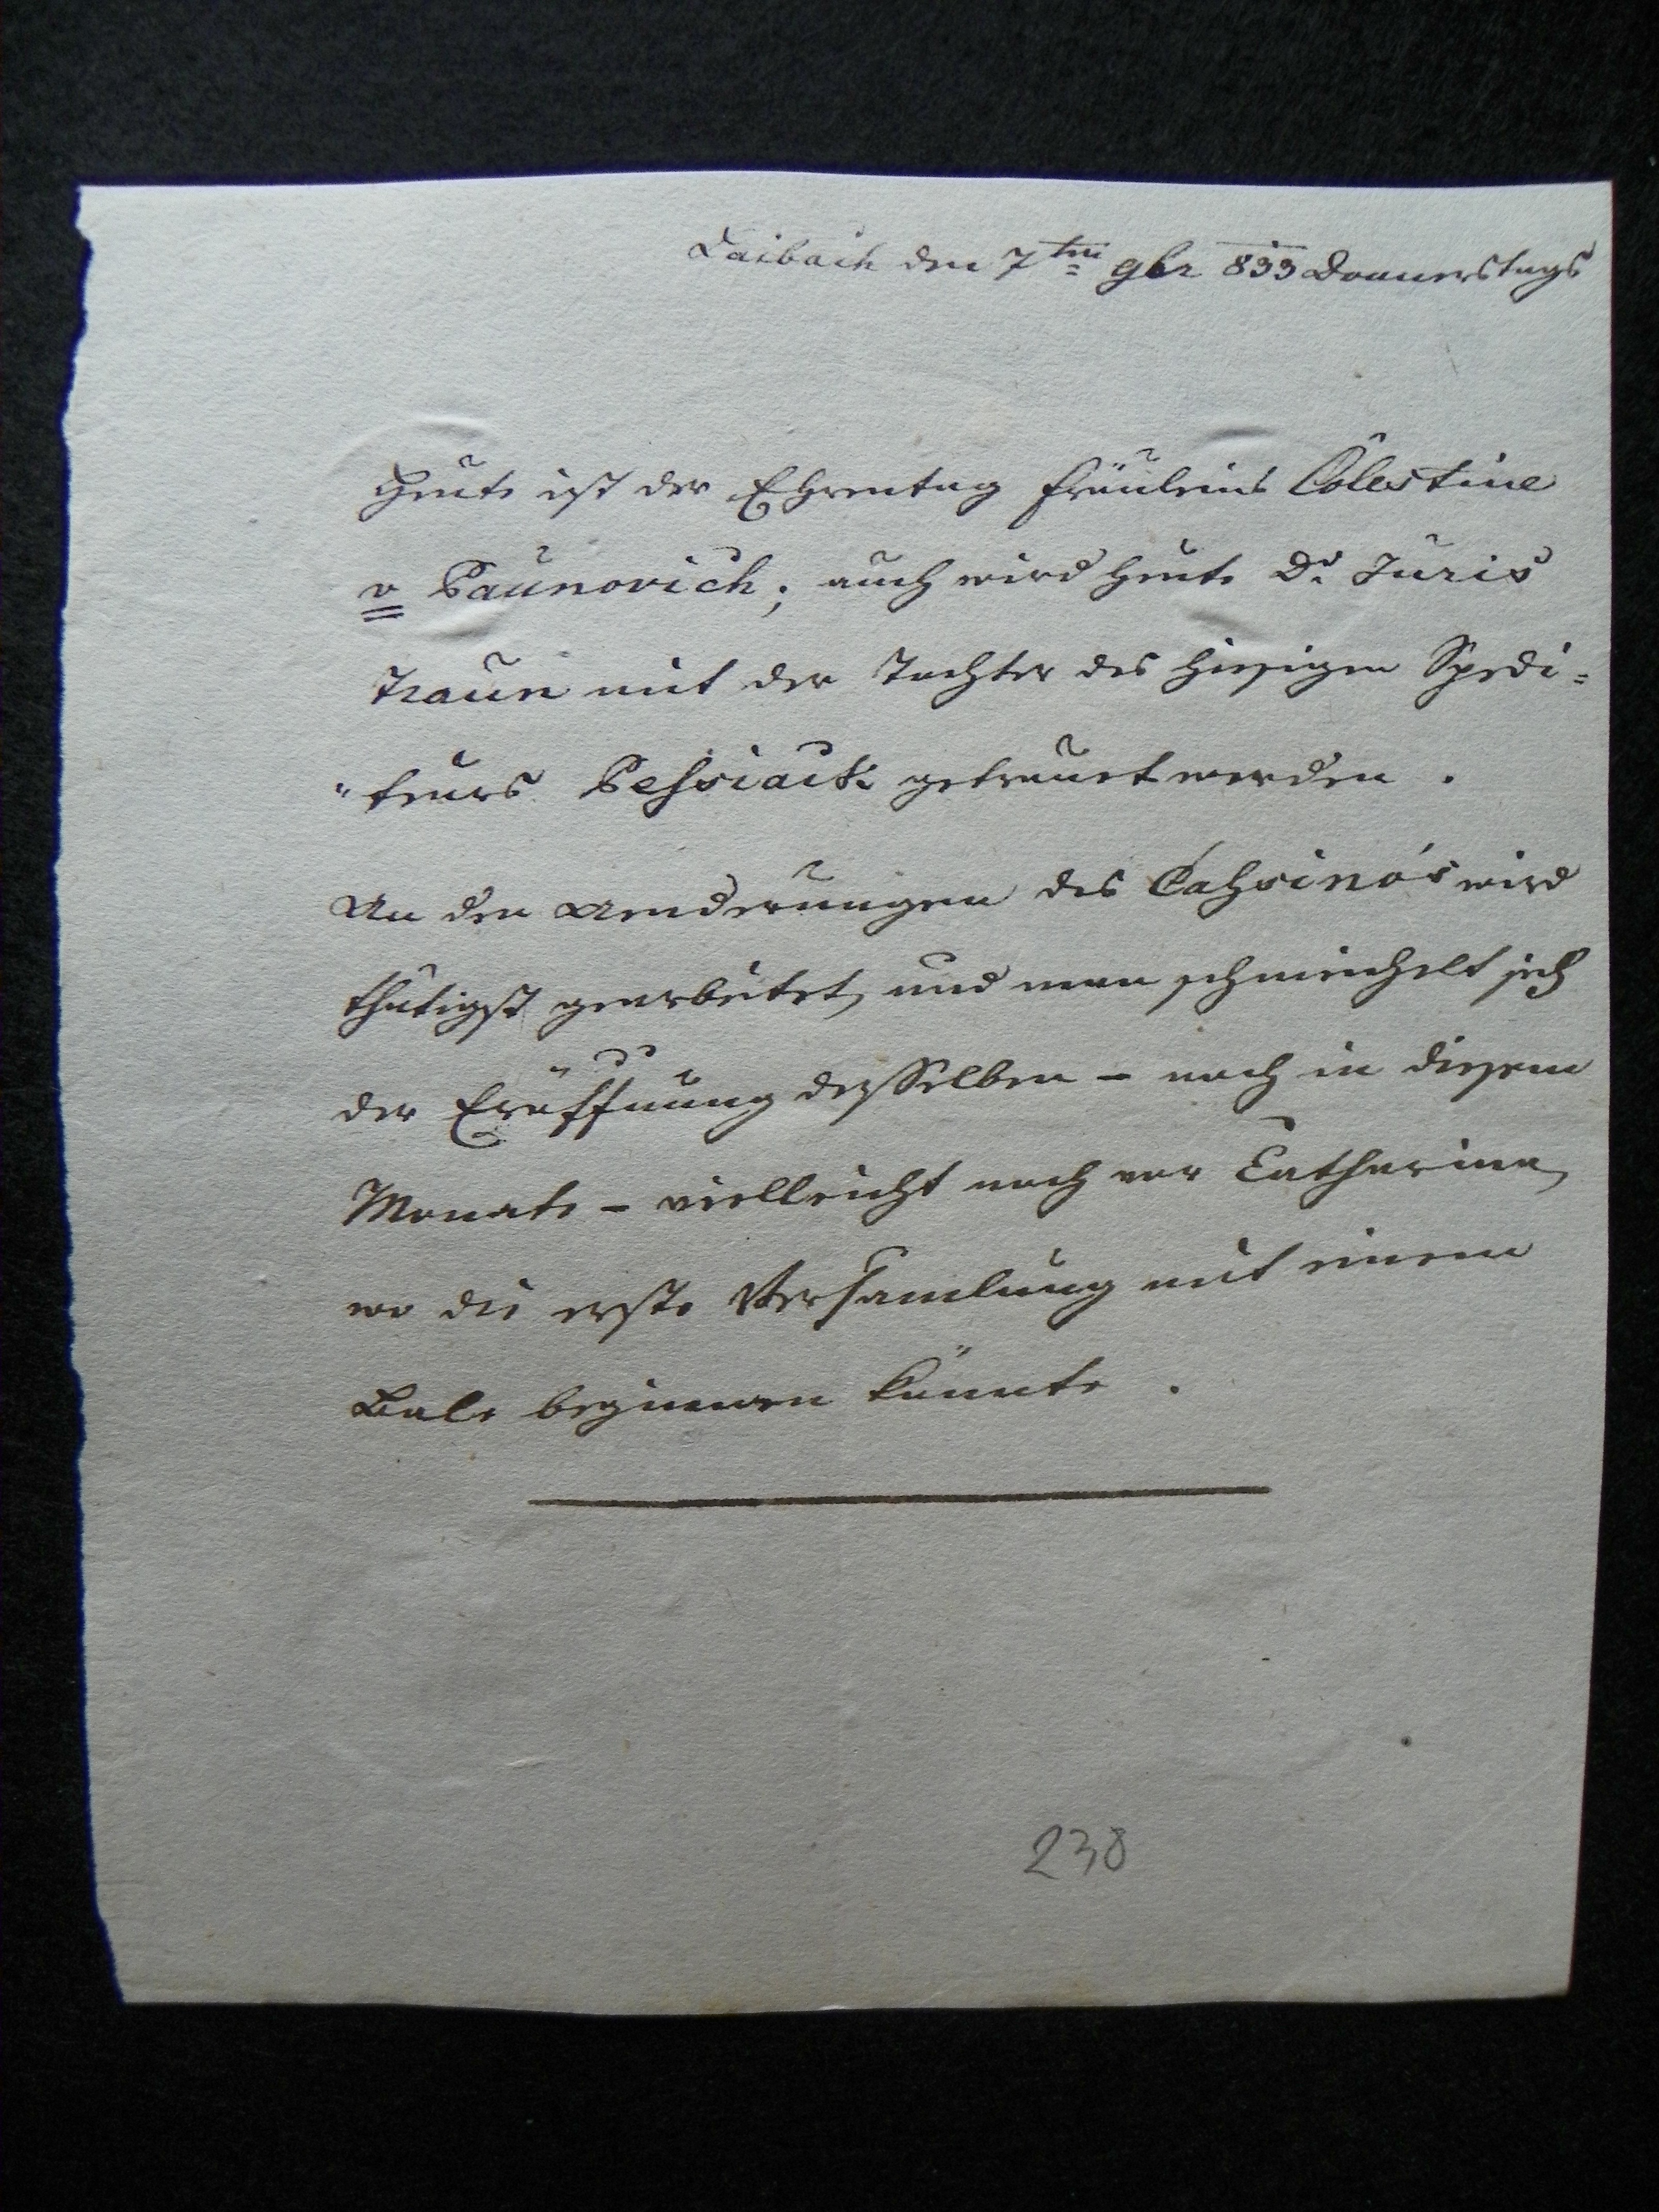 Laibach den 7ten 9br 833 Donnerstags
Heute ist der Ehrentag Fräuleins Cölestine
v Paunovich; auch wird heute Dr. Juris
Traun mit der Tochter des hiesigen Spedi=
"teurs Pessiack getrauet werden.
An den Aenderungen des Cahsino's wird
thätigst gearbeitet, und man schmeichelt sich
der Eröffnung desselben – noch in diesem
Monate – vielleicht noch vor Catharina,
wo die erste Versamlung mit einem
Bale beginnen könnte.
238